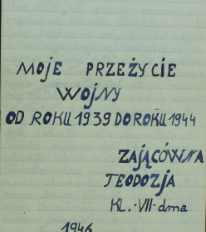 MOJE PRZEŻYCIE
WOJNY
OD ROKU 1939 DO ROKU 1944
ZAJĄCÓWNA
TEODOZJA
KL.-VII-dma
1946